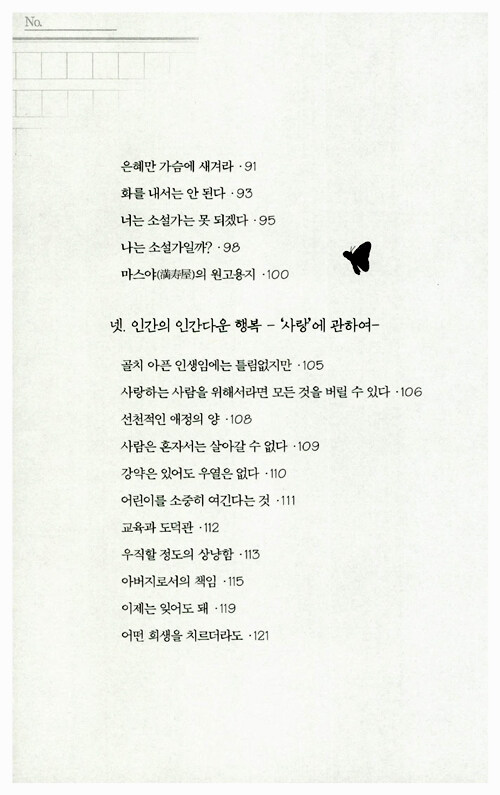 No.
은혜만 가슴에 새겨라 ·91
화를 내서는 안 된다 ·93
너는 소설가는 못 되겠다 ·95
나는 소설가일까? ·98
마스야(満寿屋)의 원고용지 ·100
넷. 인간의 인간다운 행복 – ‘사랑’에 관하여–
골치 아픈 인생임에는 틀림없지만 ·105
사랑하는 사람을 위해서라면 모든 것을 버릴 수 있다 ·106
선천적인 애정의 양 ·108
사람은 혼자서는 살아갈 수 없다 ·109
강약은 있어도 우열은 없다 ·110
어린이를 소중히 여긴다는 것 ·111
교육과 도덕관 ·112
우직할 정도의 상냥함 ·113
아버지로서의 책임 ·115
이제는 잊어도 돼 ·119
어떤 희생을 치르더라도 ·121